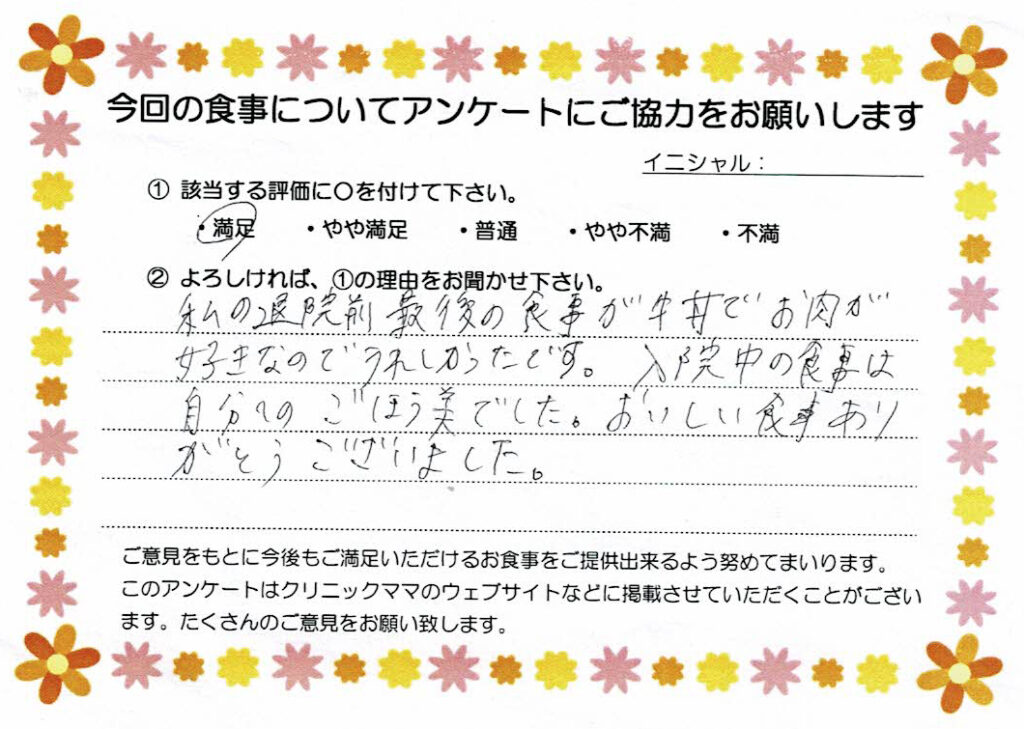 今回の食事についてアンケートにご協力をお願いします
イニシャル：
① 該当する評価に〇を付けて下さい。
・満足　・やや満足　・普通　・やや不満　・不満
② よろしければ、①の理由をお聞かせ下さい。
私の退院前最後の食事が牛丼でお肉が
好きなのでうれしかったです。入院中の食事は
自分へのごほう美でした。おいしい食事あり
がとうございました。
ご意見をもとに今後もご満足いただけるお食事をご提供出来るよう努めてまいります。
このアンケートはクリニックママのウェブサイトなどに掲載させていただくことがござい
ます。たくさんのご意見をお願い致します。